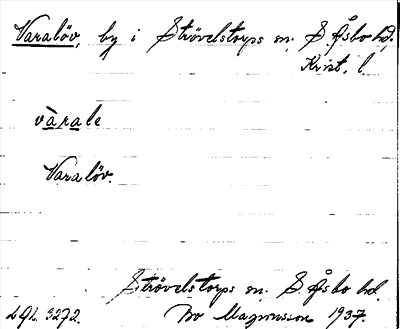 Varalöv, by i Strövelstorps sn; S. Åsbo hd,
Krist. l.
vàrale
Varalöv.
Strövelstorps sn. S. Åsbo hd.
3272. Bo Magnusson 1937